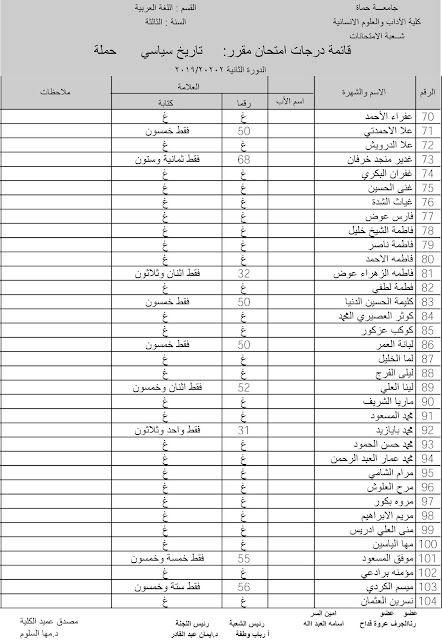 جامعة حماة
القسم : اللغة العربية
كلية الآداب والعلوم الانسانية
السنة : الثالثة
شعبة الامتحانات
قائمة درجات امتحان مقرر: تاريخ سياسي حملة
الدورة الثانية ٢٠١٩/٢٠٢٠٢
الرقم الاسم والشهرة اسم الأب العلامة ملاحظات
رقما كتابة
70 عفراء الأحمد غ غ
71 علا الاحمدتي 50 فقط خمسون
72 علا الدرويش غ غ
73 غدير منجد خرفان 68 فقط ثمانية وستون
74 غفران البكري غ غ
75 غنى الحسين غ غ
76 غياث الشدة غ غ
77 فارس عوض غ غ
78 فاطمة الشيخ خليل غ غ
79 فاطمة ناصر غ غ
80 فاطمه الاحمد غ غ
81 فاطمه الزهراء عوض 32 فقط اثنان وثلاثون
82 فطمة لطفي غ غ
83 كليمة الحسين الدنيا 50 فقط خمسون
84 كوثر العصيري المحمد غ غ
85 كوكب عزكور غ غ
86 لبانة العمر 50 فقط خمسون
87 لما الخليل غ غ
88 ليلى الفرج غ غ
89 لينا العلي 52 فقط اثنان وخمسون
90 ماريا الشريف غ غ
91 محمد المسعود غ غ
92 محمد بايازيد 31 فقط واحد وثلاثون
93 محمد حسن الحمود غ غ
94 محمد عمار العبد الرحمن غ غ
95 مرام الشامي غ غ
96 مرح العلوش غ غ
97 مروه بكور غ غ
98 مريم الابراهيم غ غ
99 منى العلي ادريس غ غ
100 مها الياسين غ غ
101 موفق المسعود 55 فقط خمسة وخمسون
102 مؤمنه برادعي غ غ
103 ميسم الكردي 56 فقط ستة وخمسون
104 نسرين العثمان غ غ
عضو عضو امين السر رئيس الشعبة رئيس اللجنة مصدق عميد الكلية
رنا الجرف عروة قداح اسامه العبد الله أ رباب وطفة د.ايمان عبد القادر د.مها السلوم